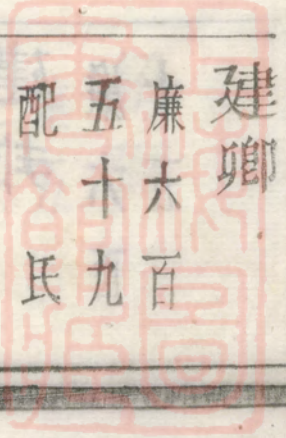 建卿
廉六百
五十九
配　氏